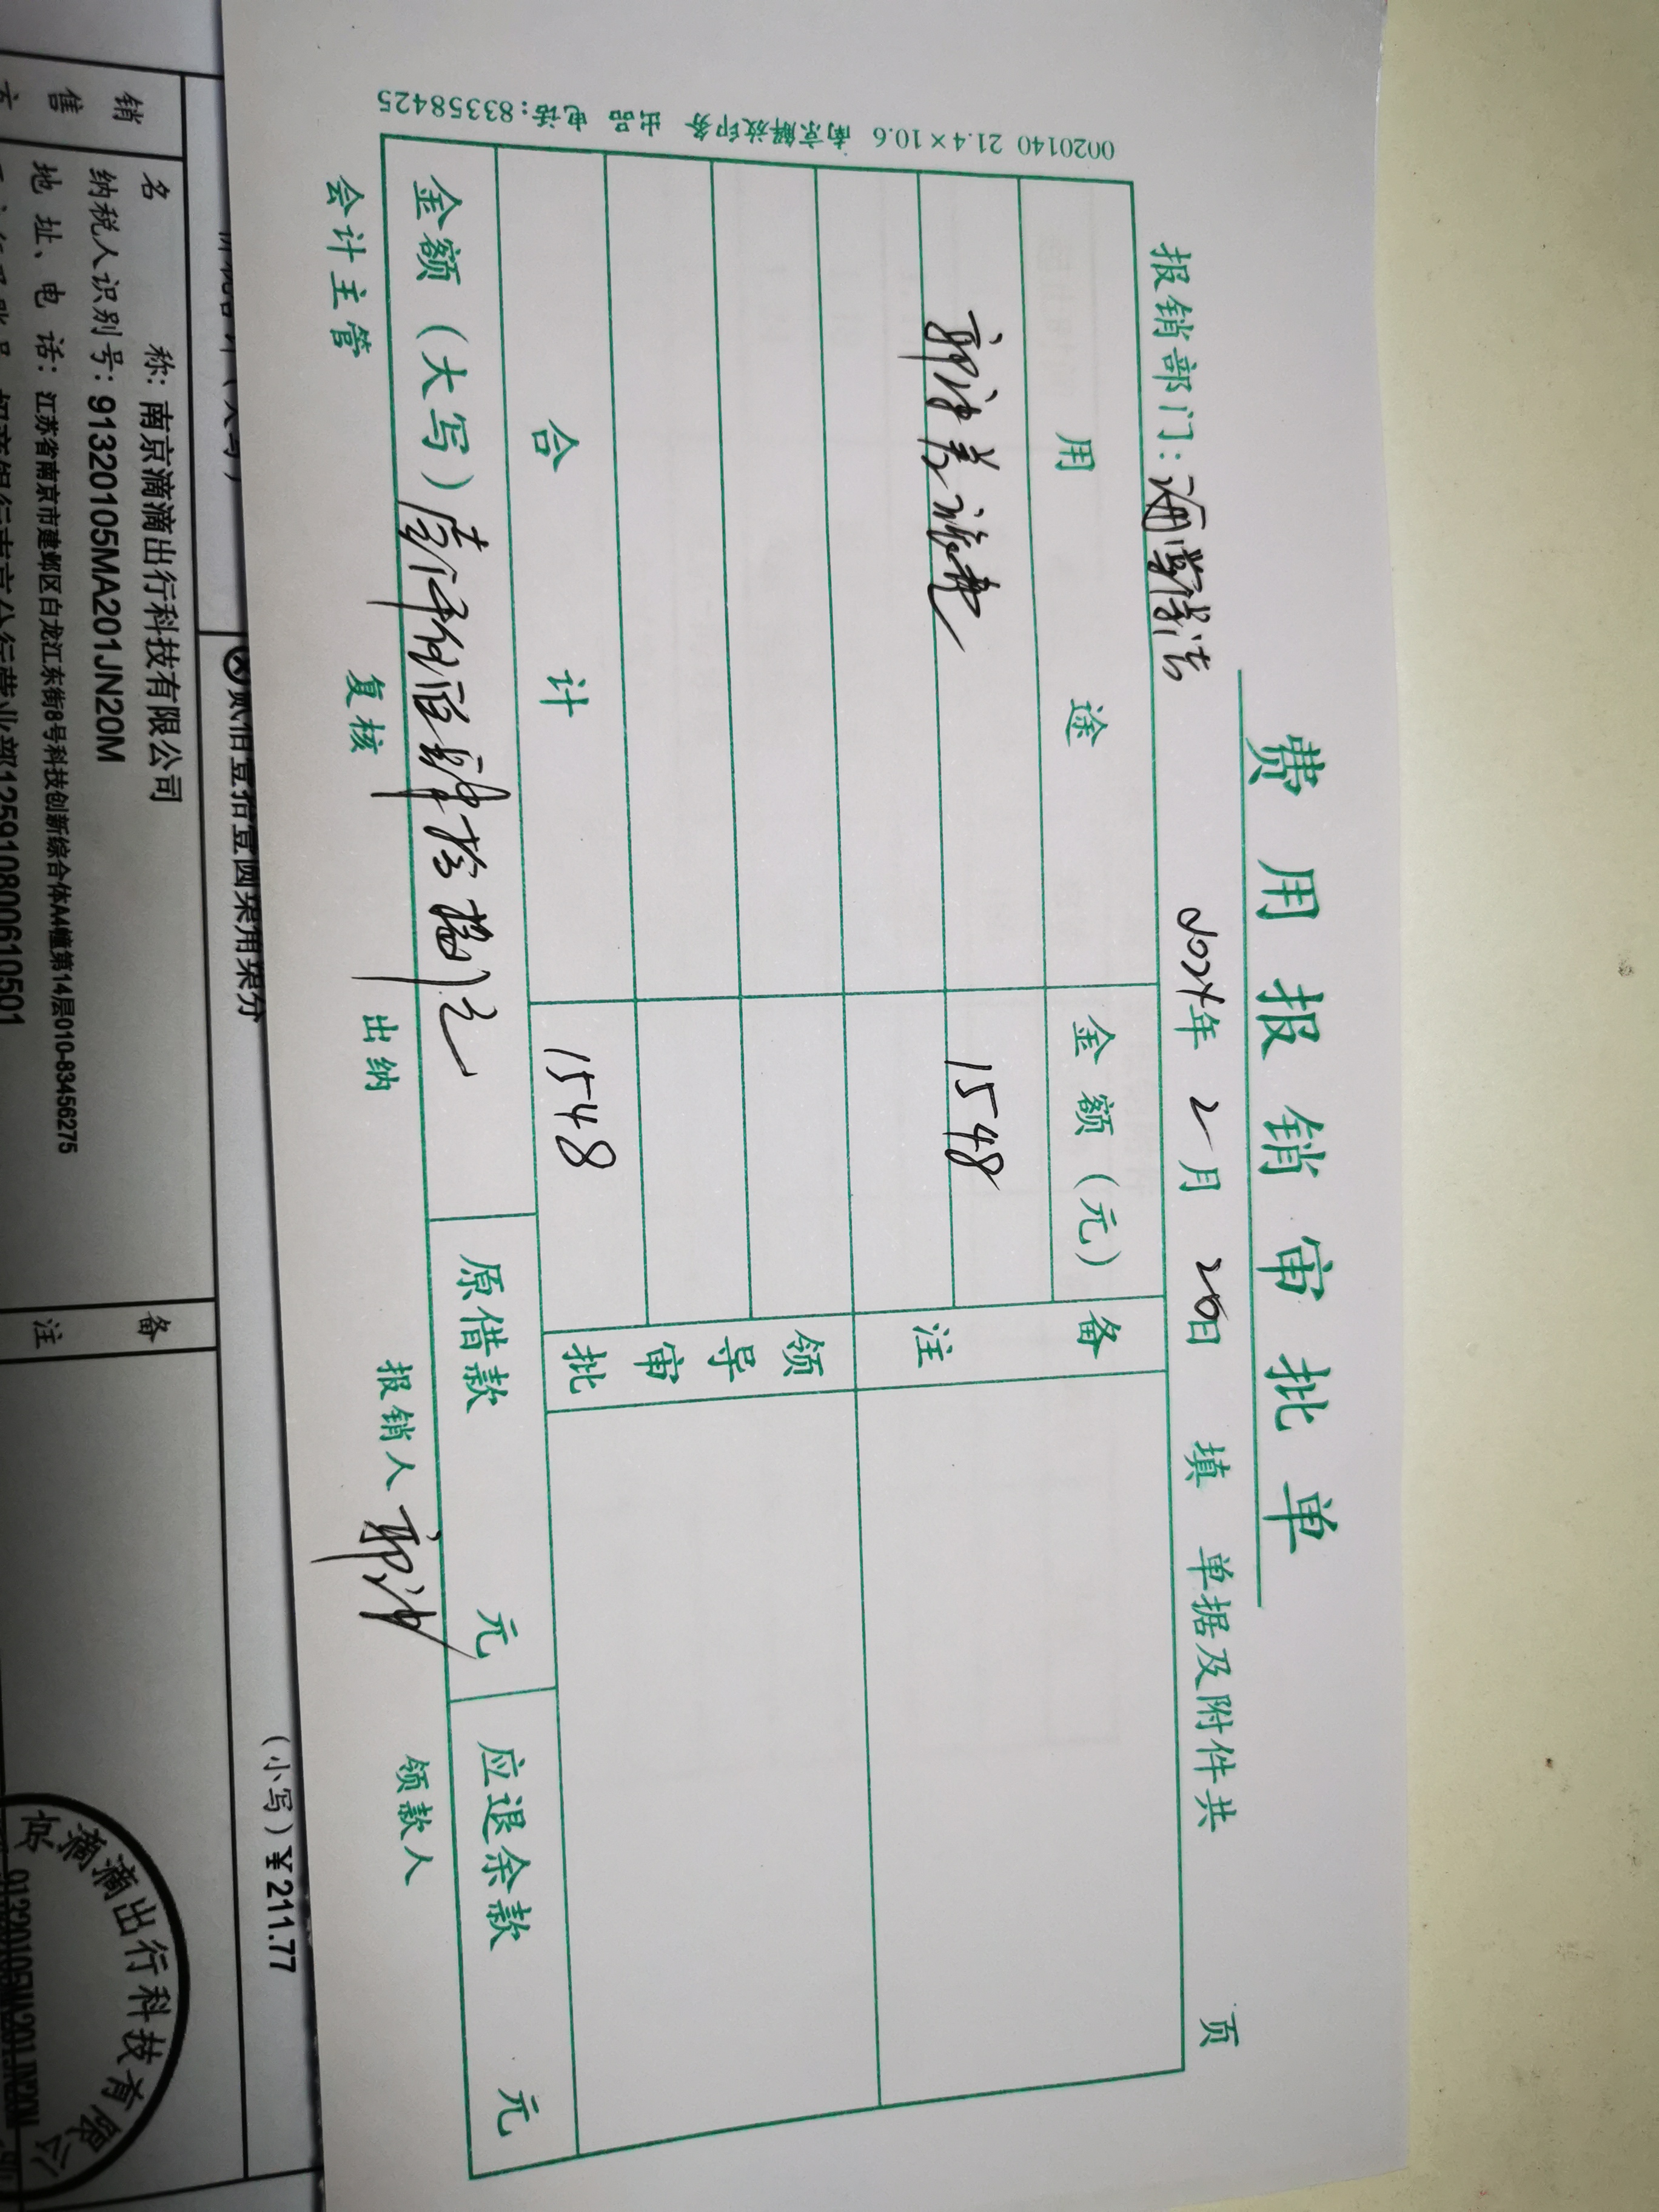 费用报销审批单
报销部门: 2024年 2月 20日 填 单据及附件共 页
用 途 金 额（元） 备注
郭津差旅费 1548
领导审批
合 计 1548
金额（大写）壹仟伍佰肆拾捌元 原借款 元 应退余款 元
会计主管 复核 出纳 报销人 郭津 领款人
0020140 21.4×10.6 南京解放印务 出品 电话:83358425
⊗贰佰壹拾壹圆柒角柒分 （小写）¥211.77
销售方
名 称: 南京滴滴出行科技有限公司
纳税人识别号: 91320105MA201JN20M
地 址、电 话: 江苏省南京市建邺区白龙江东街8号科技创新综合体A4幢第14层010-83456275
招商银行南京分行营业部125910800610501
备注
京滴滴出行科技有限公
91320105MA201JN20M